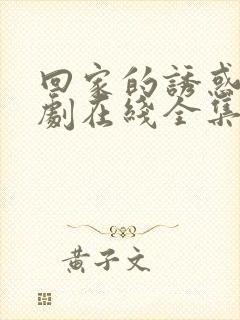 回家的誘惑
劇在綫全集
黃子文